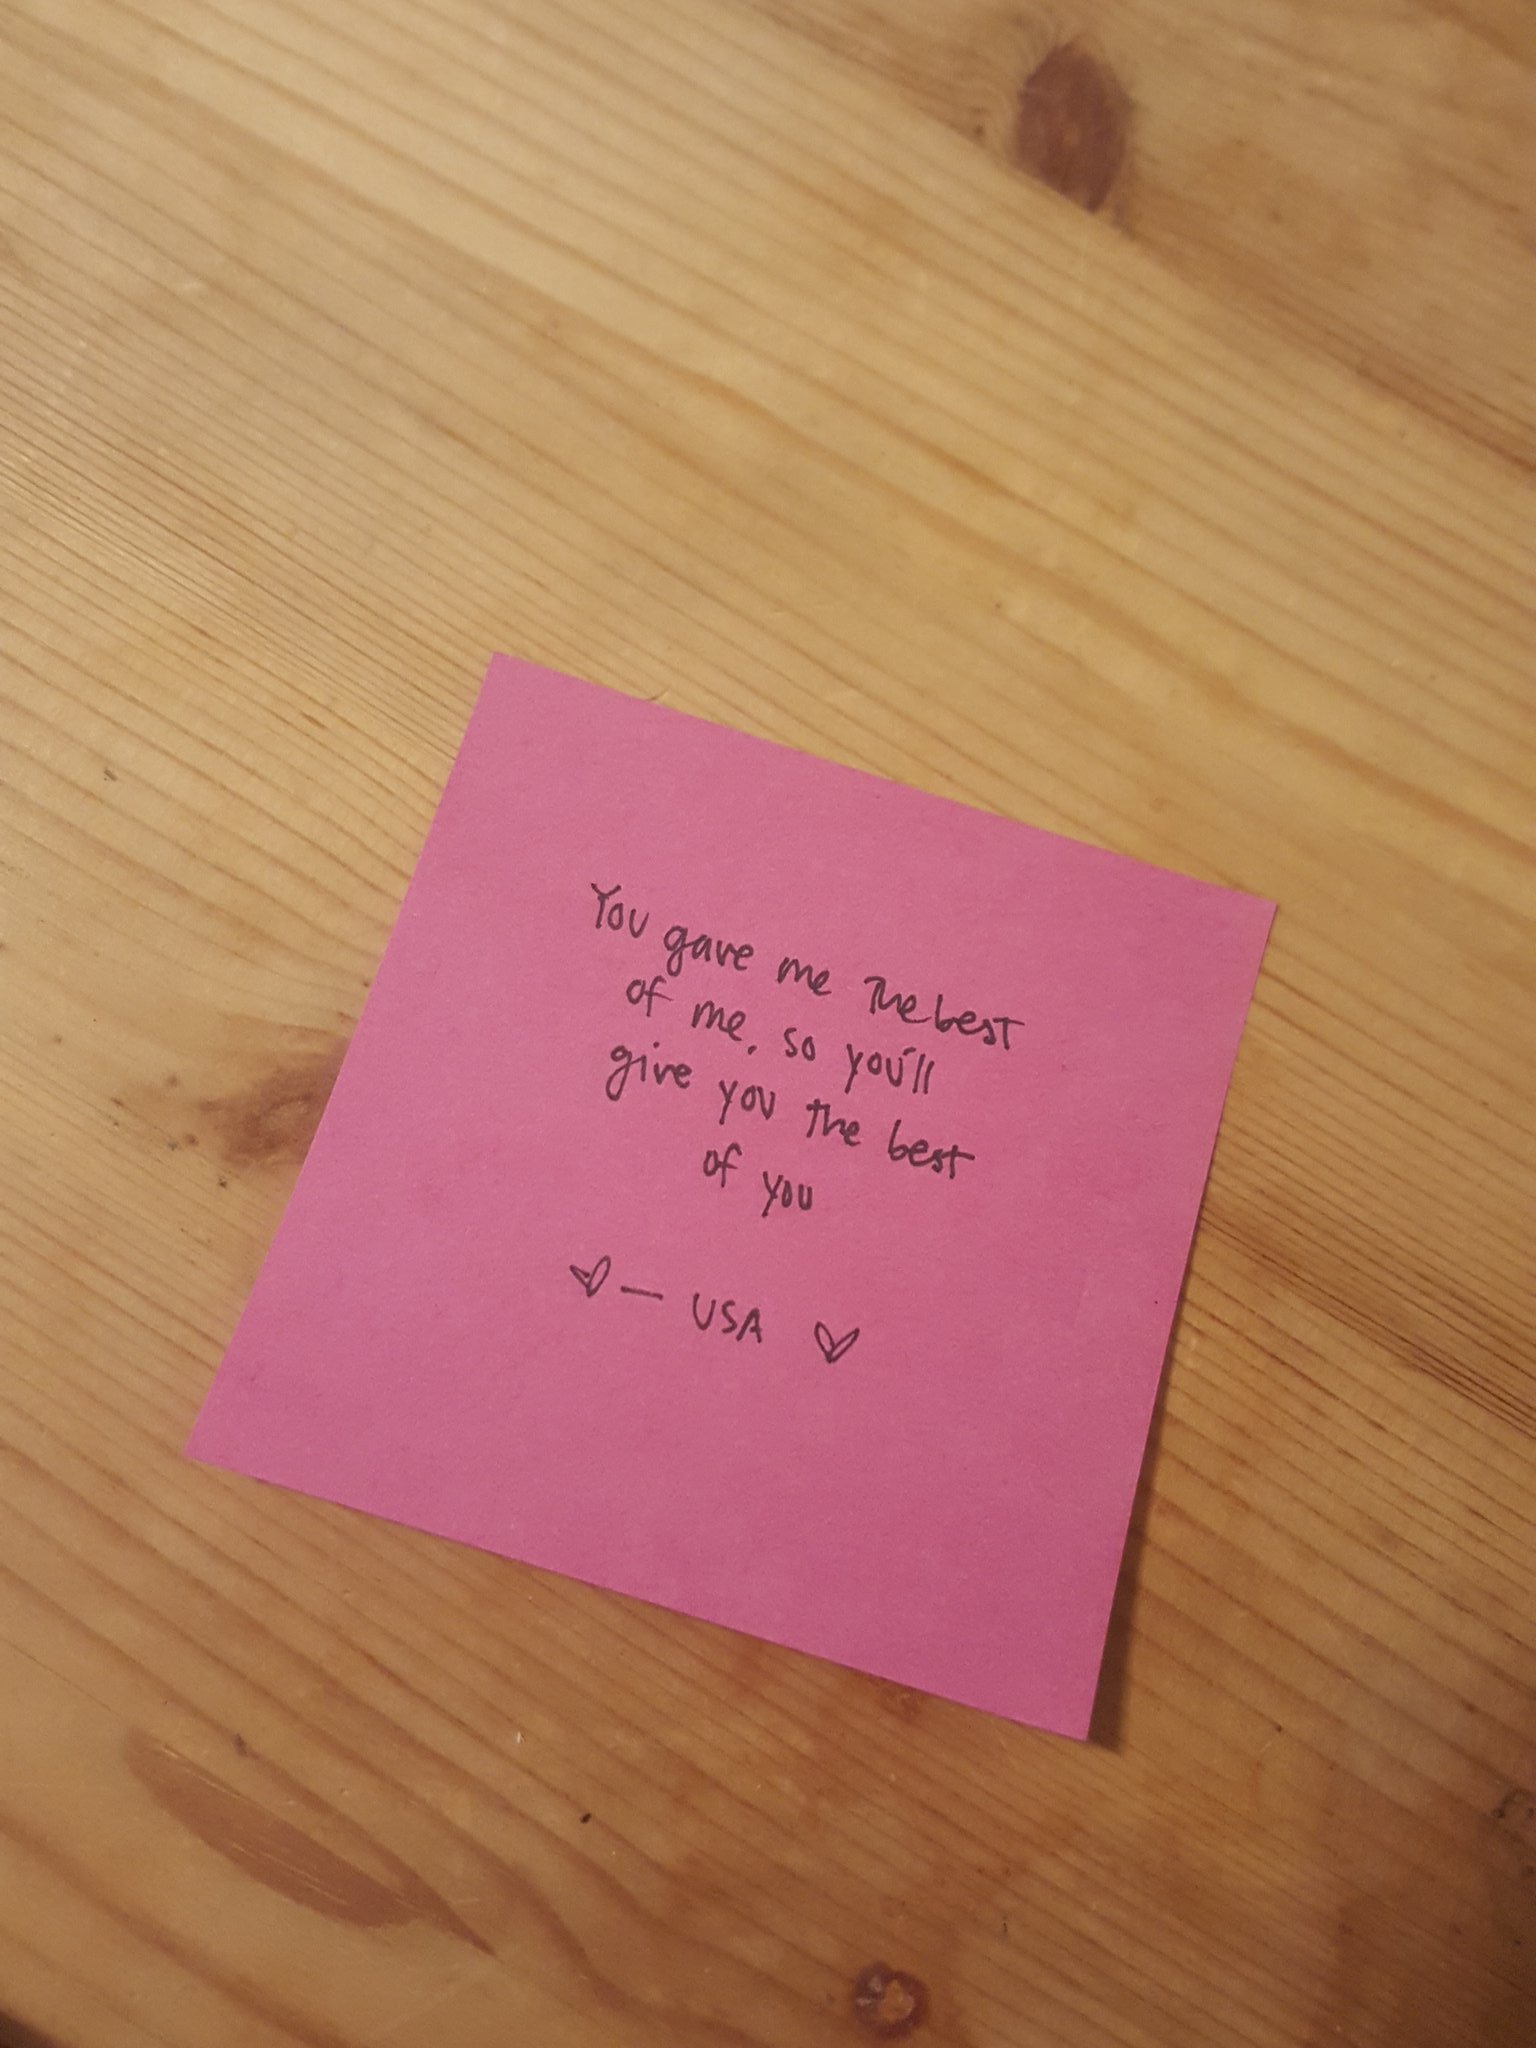 You gave me the best
of me. so you'll
give you the best
of you
♡ — USA ♡